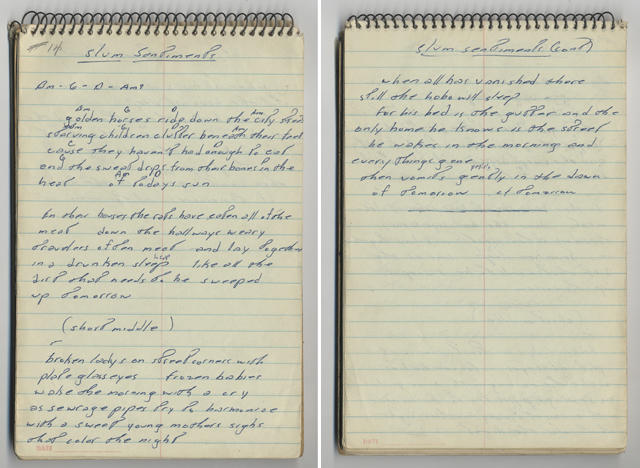 #14
Slum Sentiments
Am - G - D - Am9
Am G D Am
golden horses ride down the city streets
starving children cluster beneath their feet
cause they haven't had enough to eat
G
and the sweat drips from their bones in the
Am D
heat of todays sun
In their houses the rats have eaten all of the
meat down the hallways weary
travelers often meet and lay together
in a drunken sleep like all the
dirt that needs to be sweeped
up tomorrow
(short middle)
broken ladys on street corners with
plate glass eyes frozen babies
wake the morning with a cry
as sewrage pipes try to harmonize
with a sweet young mothers sighs
that color the night
slum sentiments (cont)
when all has vanished there
still the hobo will sleep
for his bed is the gutter and the
only home he knows is the street
he wakes in the morning and
every things gone
then vomits gently in the dawn
of tomorrow of tomorrow